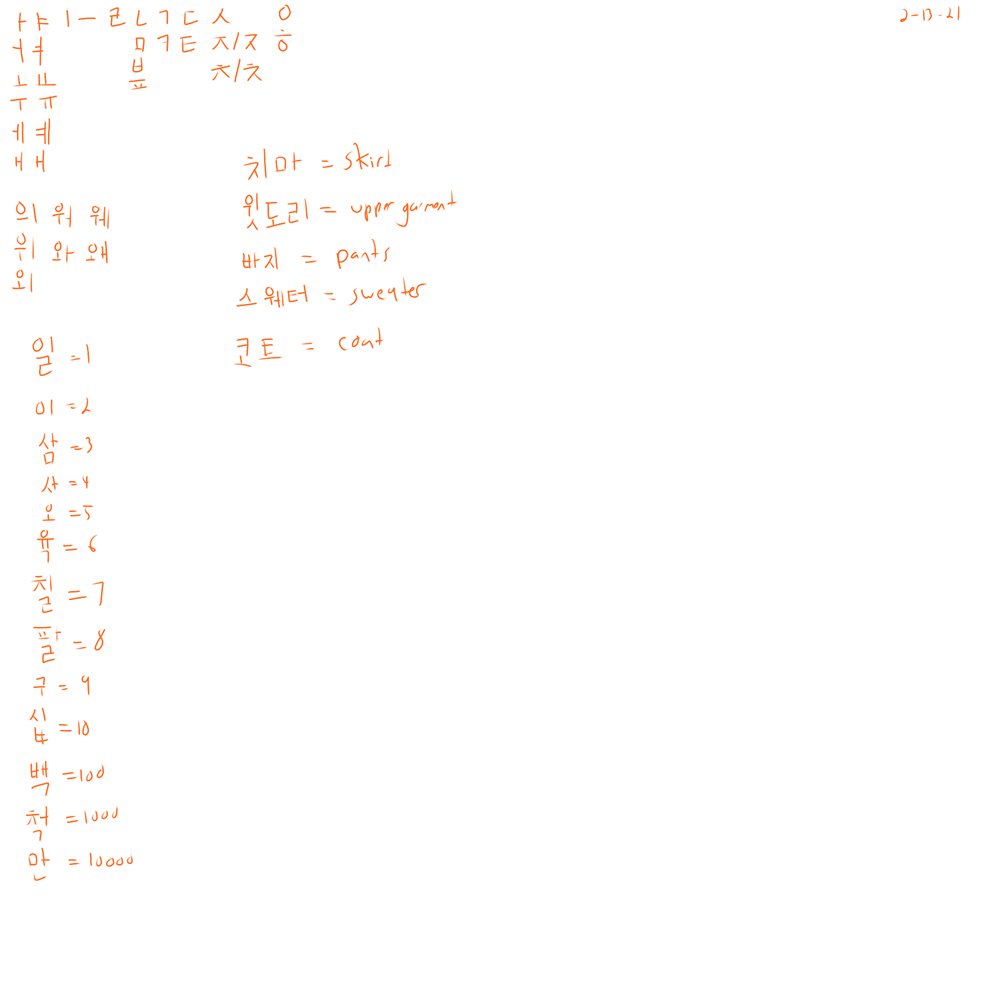 ㅏ ㅑ ㅣ ㅡ ㄹ ㄴ ㄱ ㄷ ㅅ ㅇ
2-13-21
ㅓ ㅕ ㅁ ㅋ ㅌ ㅈ/ㅈ ㅎ
ㅗ ㅛ ㅂ ㅊ/ㅊ
ㅜ ㅠ ㅍ
ㅔ ㅖ
ㅐ ㅒ
의 워 웨
위 와 왜
외
치마 = skirt
윗도리 = upper garment
바지 = pants
스웨터 = sweater
코트 = coat
일 =1
이 =2
삼 =3
사 =4
오 =5
육 = 6
칠 = 7
팔 = 8
구 = 9
십 =10
백 =100
척 =1000
만 = 10000